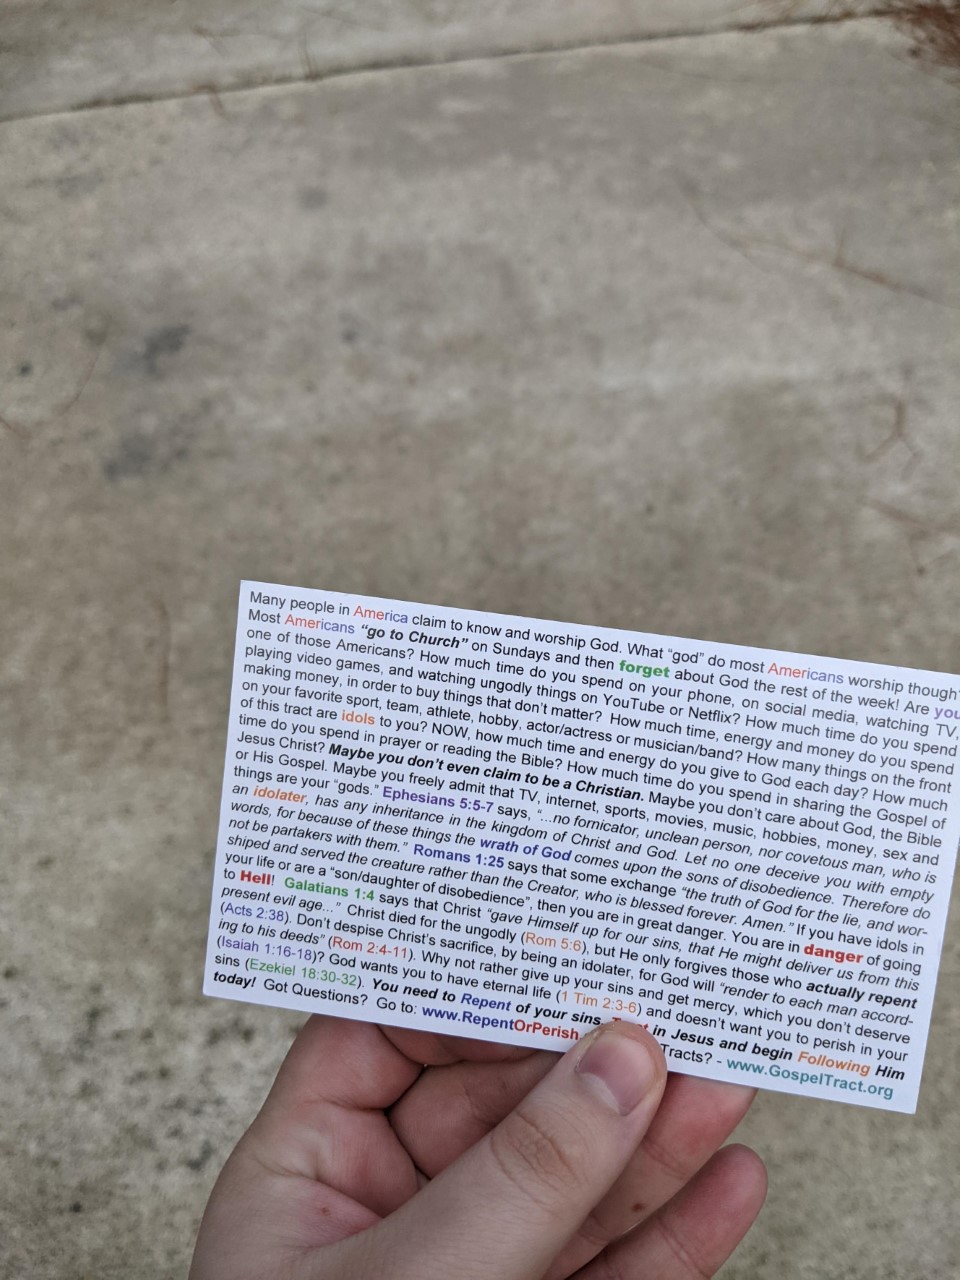 Many people in America claim to know and worship God. What “god” do most Americans worship though?
Most Americans “go to Church” on Sundays and then forget about God the rest of the week! Are you
one of those Americans? How much time do you spend on your phone, on social media, watching TV,
playing video games, and watching ungodly things on YouTube or Netflix? How much time do you spend
making money, in order to buy things that don’t matter? How much time, energy and money do you spend
on your favorite sport, team, athlete, hobby, actor/actress or musician/band? How many things on the front
of this tract are idols to you? NOW, how much time and energy do you give to God each day? How much
time do you spend in prayer or reading the Bible? How much time do you spend in sharing the Gospel of
Jesus Christ? Maybe you don’t even claim to be a Christian. Maybe you don’t care about God, the Bible
or His Gospel. Maybe you freely admit that TV, internet, sports, movies, music, hobbies, money, sex and
things are your “gods.” Ephesians 5:5-7 says, “...no fornicator, unclean person, nor covetous man, who is
an idolater, has any inheritance in the kingdom of Christ and God. Let no one deceive you with empty
words, for because of these things the wrath of God comes upon the sons of disobedience. Therefore do
not be partakers with them.” Romans 1:25 says that some exchange “the truth of God for the lie, and wor-
shiped and served the creature rather than the Creator, who is blessed forever. Amen.” If you have idols in
your life or are a “son/daughter of disobedience”, then you are in great danger. You are in danger of going
to Hell! Galatians 1:4 says that Christ “gave Himself up for our sins, that He might deliver us from this
present evil age...” Christ died for the ungodly (Rom 5:6), but He only forgives those who actually repent
(Acts 2:38). Don’t despise Christ’s sacrifice, by being an idolater, for God will “render to each man accord-
ing to his deeds” (Rom 2:4-11). Why not rather give up your sins and get mercy, which you don’t deserve
(Isaiah 1:16-18)? God wants you to have eternal life (1 Tim 2:3-6) and doesn’t want you to perish in your
sins (Ezekiel 18:30-32). You need to Repent of your sins, in Jesus and begin Following Him
today! Got Questions? Go to: www.RepentOrPerish. Tracts? - www.GospelTract.org